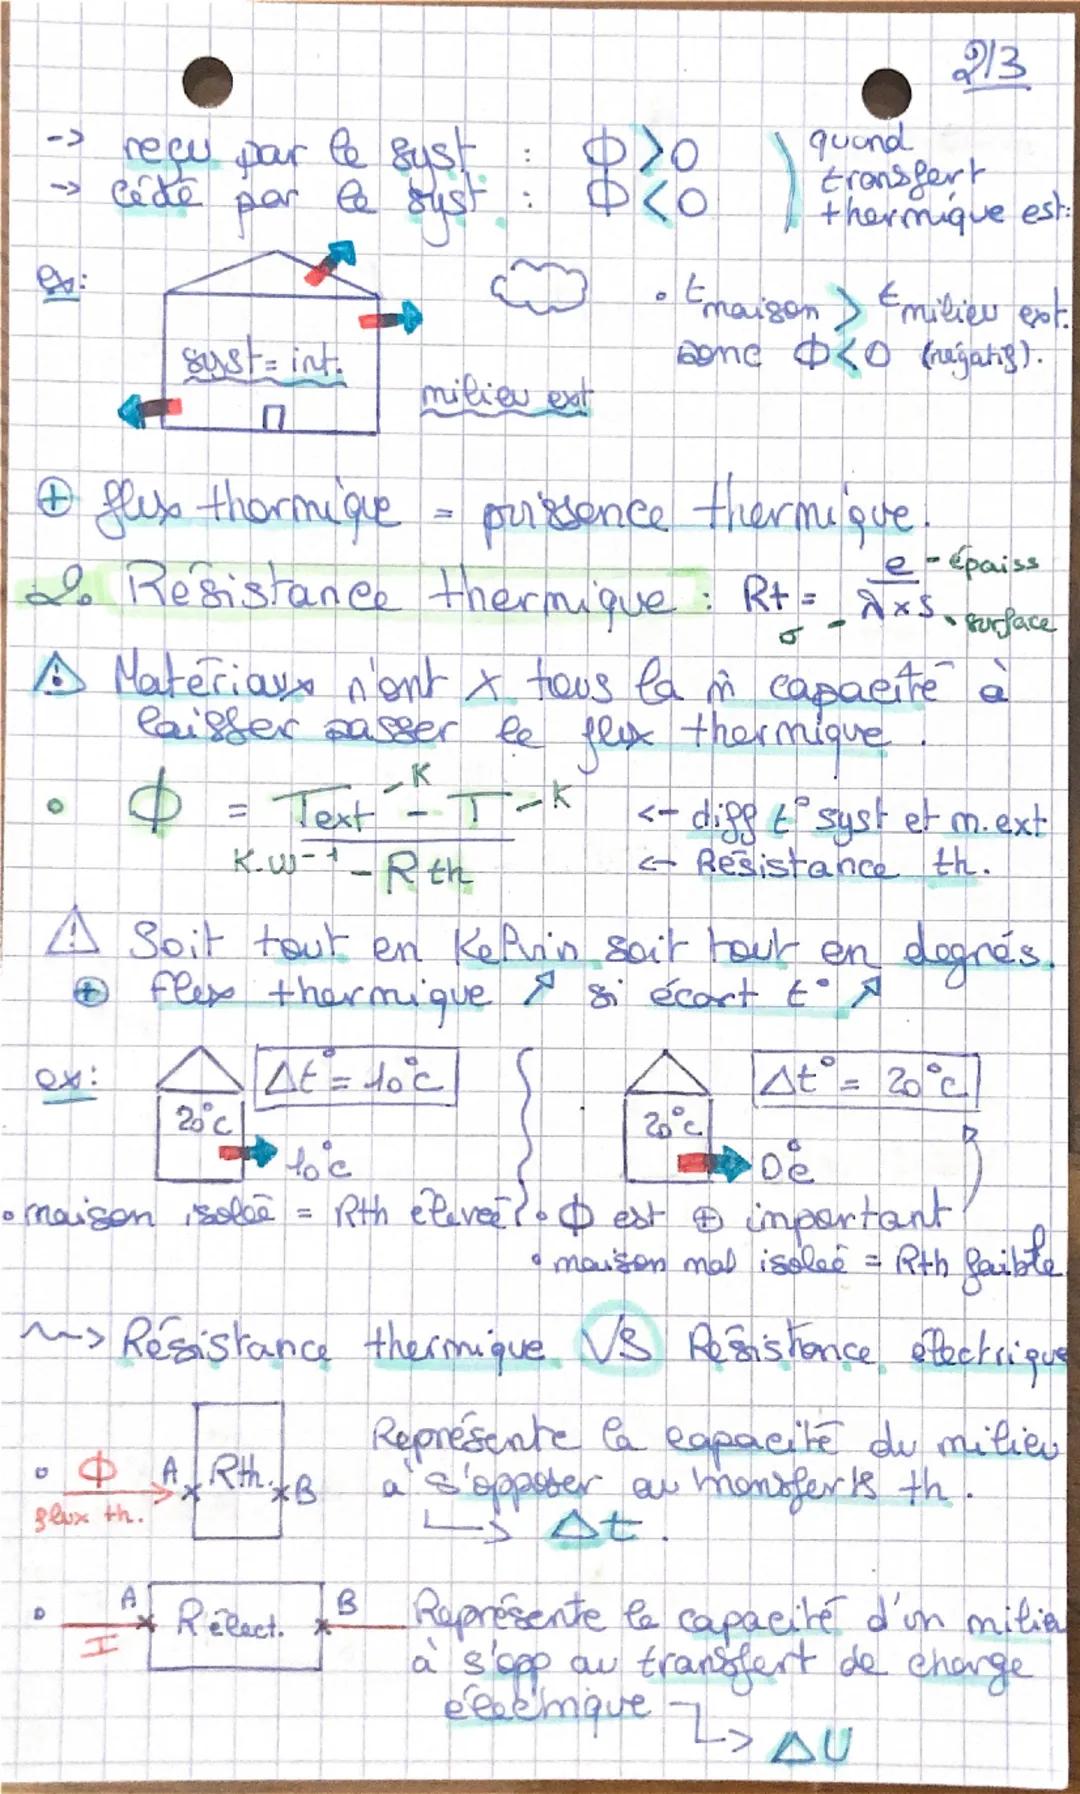 2/3
-> reçu par le syst : Φ>0
-> cédé par le syst : Φ<0
quand
transfert
thermique est:
ex:
syst = int.
milieu ext
• t maison > t milieu ext.
donc Φ<0 (négatif).
⊕ flux thermique = puissence thermique.
2. Résistance thermique : Rt = e / λ x S
- épaiss
- surface
σ -
⚠ Matériaux n'ont x tous la m̂ capacité à
laisser passer le flux thermique.
• Φ = Text - T / Rth
- K
- K
K.W⁻¹ -
<- diff t° syst et m.ext
<- Résistance th.
⚠ Soit tout en Kelvin soit tout en degrés.
⊕ flux thermique ↗ si écart t° ↗
ex:
20°c
Δt° = 10°c
10°c
20°c
Δt° = 20°c
0°c
• maison isolée = Rth élevée
• Φ est ⊕ important
• maison mal isolée = Rth faible
~~> Résistance thermique VS Résistance électrique
• Φ
flux th.
A Rth. B
Représente la capacité du milieu
à s'opposer au transferts th.
↳ Δt.
• I
A R élect. B
Représente la capacité d'un milieu
à s'opp au transfert de charge
électrique
↳ ΔU